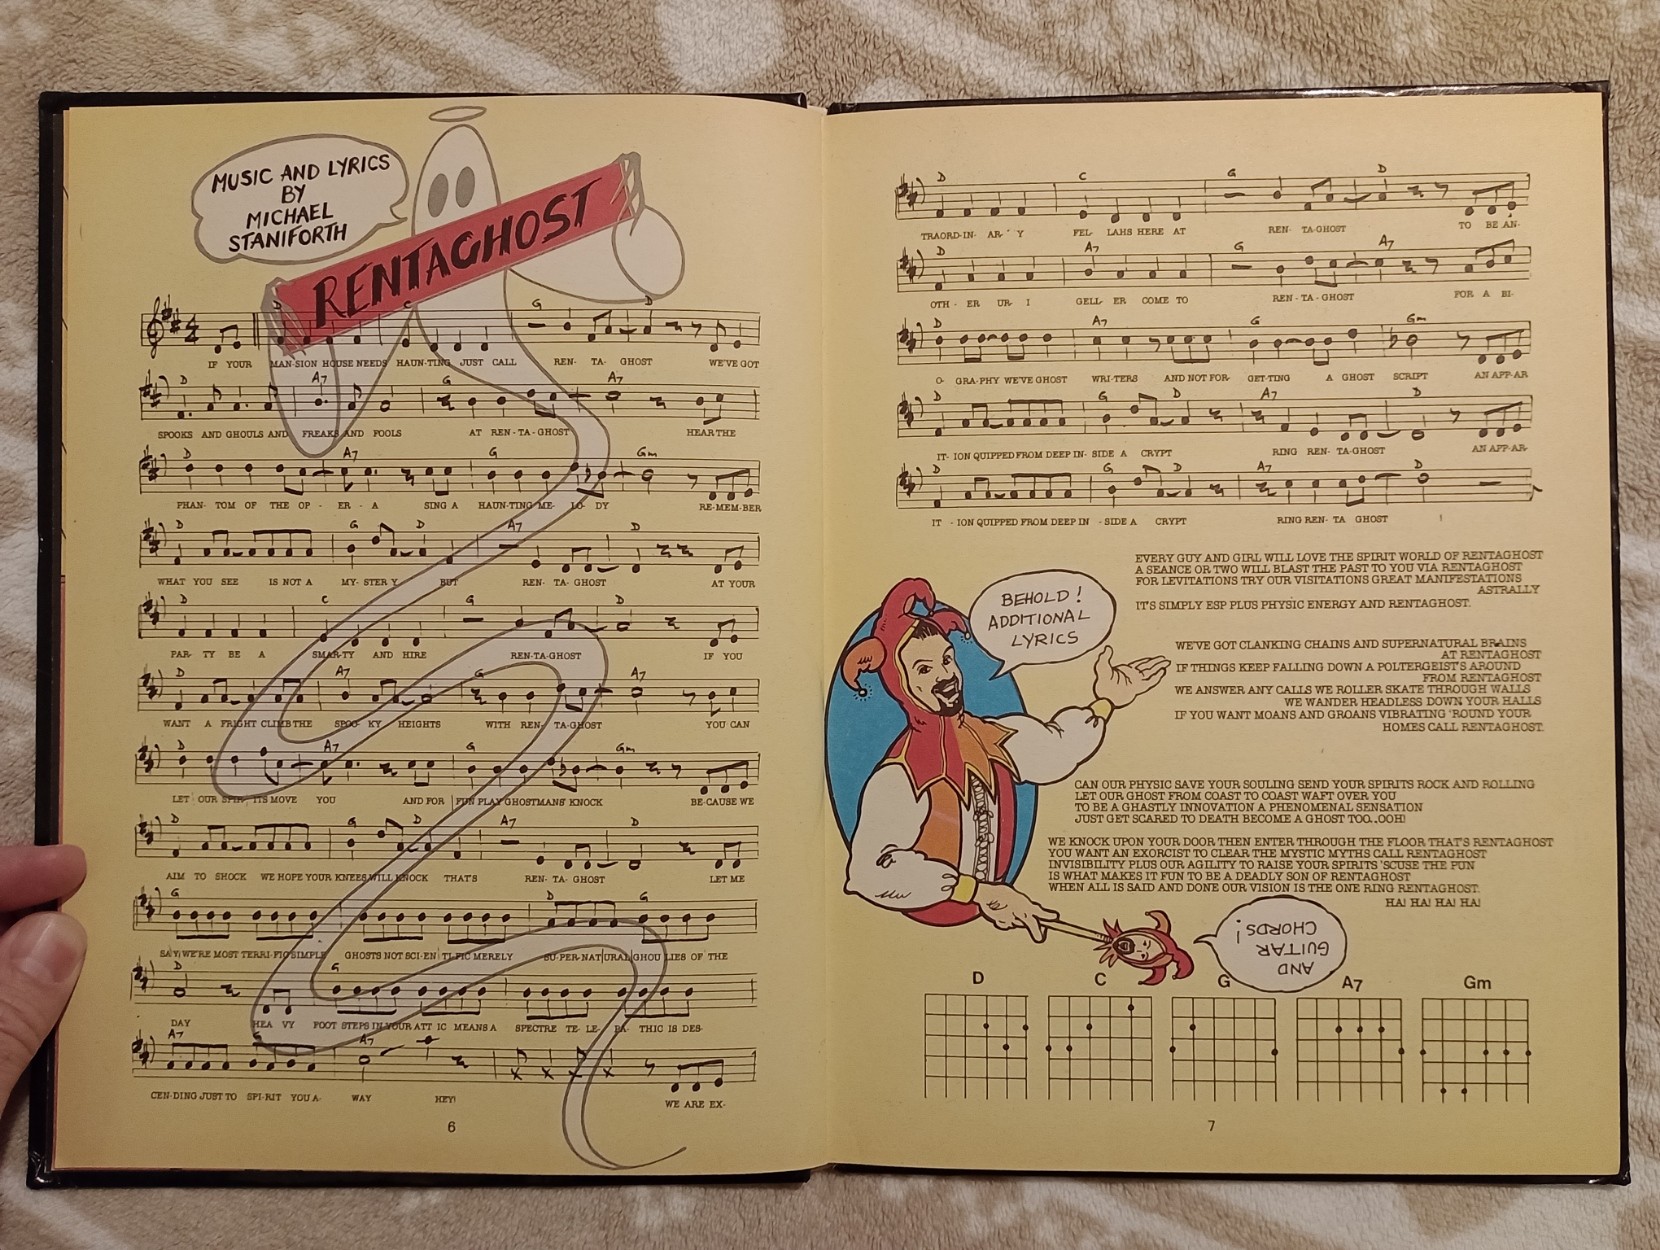 MUSIC AND LYRICS
BY
MICHAEL
STANIFORTH
RENTAGHOST
D C G D
IF YOUR MAN-SION HOUSE NEEDS HAUN-TING JUST CALL REN- TA- GHOST WE'VE GOT
D A7 G A7
SPOOKS AND GHOULS AND FREAKS AND FOOLS AT REN-TA-GHOST HEAR THE
D A7 G Gm
PHAN- TOM OF THE OP - ER - A SING A HAUN-TING ME- LO- DY RE-MEM-BER
D G D A7 D
WHAT YOU SEE IS NOT A MY- STER Y BUT REN- TA- GHOST AT YOUR
D C G D
PAR- TY BE A SMAR-TY AND HIRE REN-TA-GHOST IF YOU
D A7 G A7
WANT A FRIGHT CLIMB THE SPOO- KY HEIGHTS WITH REN- TA-GHOST YOU CAN
D A7 G Gm
LET OUR SPIR- ITS MOVE YOU AND FOR FUN PLAY GHOSTMANS KNOCK BE-CAUSE WE
D G D A7 D
AIM TO SHOCK WE HOPE YOUR KNEES WILL KNOCK THAT'S REN- TA- GHOST LET ME
G D G
SAY WE'RE MOST TERRI-FIC SIMPLE GHOSTS NOT SCI-EN TI-FIC MERELY SU-PER-NATURAL GHOU LIES OF THE
D G
DAY HEA VY FOOT STEPS IN YOUR ATT IC MEANS A SPECTRE TE- LE- PA- THIC IS DES-
A7 G A7
CEN-DING JUST TO SPI-RIT YOU A- WAY HEY! WE ARE EX-
6
D C G D
TRAORD-IN- AR-' Y FEL- LAHS HERE AT REN- TA-GHOST TO BE AN-
D A7 G A7
OTH - ER UR- I GELL- ER COME TO REN-TA-GHOST FOR A BI-
D A7 G Gm
O- GRA-PHY WE'VE GHOST WRI-TERS AND NOT FOR- GET-TING A GHOST SCRIPT AN APP-AR
D G D A7 D
IT- ION QUIPPED FROM DEEP IN- SIDE A CRYPT RING REN- TA-GHOST AN APP-AR-
D G D A7 D
IT - ION QUIPPED FROM DEEP IN - SIDE A CRYPT RING REN- TA GHOST
EVERY GUY AND GIRL WILL LOVE THE SPIRIT WORLD OF RENTAGHOST
A SEANCE OR TWO WILL BLAST THE PAST TO YOU VIA RENTAGHOST
FOR LEVITATIONS TRY OUR VISITATIONS GREAT MANIFESTATIONS
ASTRALLY
IT'S SIMPLY ESP PLUS PHYSIC ENERGY AND RENTAGHOST.
BEHOLD!
ADDITIONAL
LYRICS
WE'VE GOT CLANKING CHAINS AND SUPERNATURAL BRAINS
AT RENTAGHOST
IF THINGS KEEP FALLING DOWN A POLTERGEIST'S AROUND
FROM RENTAGHOST
WE ANSWER ANY CALLS WE ROLLER SKATE THROUGH WALLS
WE WANDER HEADLESS DOWN YOUR HALLS
IF YOU WANT MOANS AND GROANS VIBRATING 'ROUND YOUR
HOMES CALL RENTAGHOST.
CAN OUR PHYSIC SAVE YOUR SOULING SEND YOUR SPIRITS ROCK AND ROLLING
LET OUR GHOST FROM COAST TO COAST WAFT OVER YOU
TO BE A GHASTLY INNOVATION A PHENOMENAL SENSATION
JUST GET SCARED TO DEATH BECOME A GHOST TOO..OOH!
WE KNOCK UPON YOUR DOOR THEN ENTER THROUGH THE FLOOR THAT'S RENTAGHOST
YOU WANT AN EXORCIST TO CLEAR THE MYSTIC MYTHS CALL RENTAGHOST
INVISIBILITY PLUS OUR AGILITY TO RAISE YOUR SPIRITS 'SCUSE THE PUN
IS WHAT MAKES IT FUN TO BE A DEADLY SON OF RENTAGHOST
WHEN ALL IS SAID AND DONE OUR VISION IS THE ONE RING RENTAGHOST.
HA! HA! HA! HA!
AND
GUITAR
CHORDS!
D C G A7 Gm
7